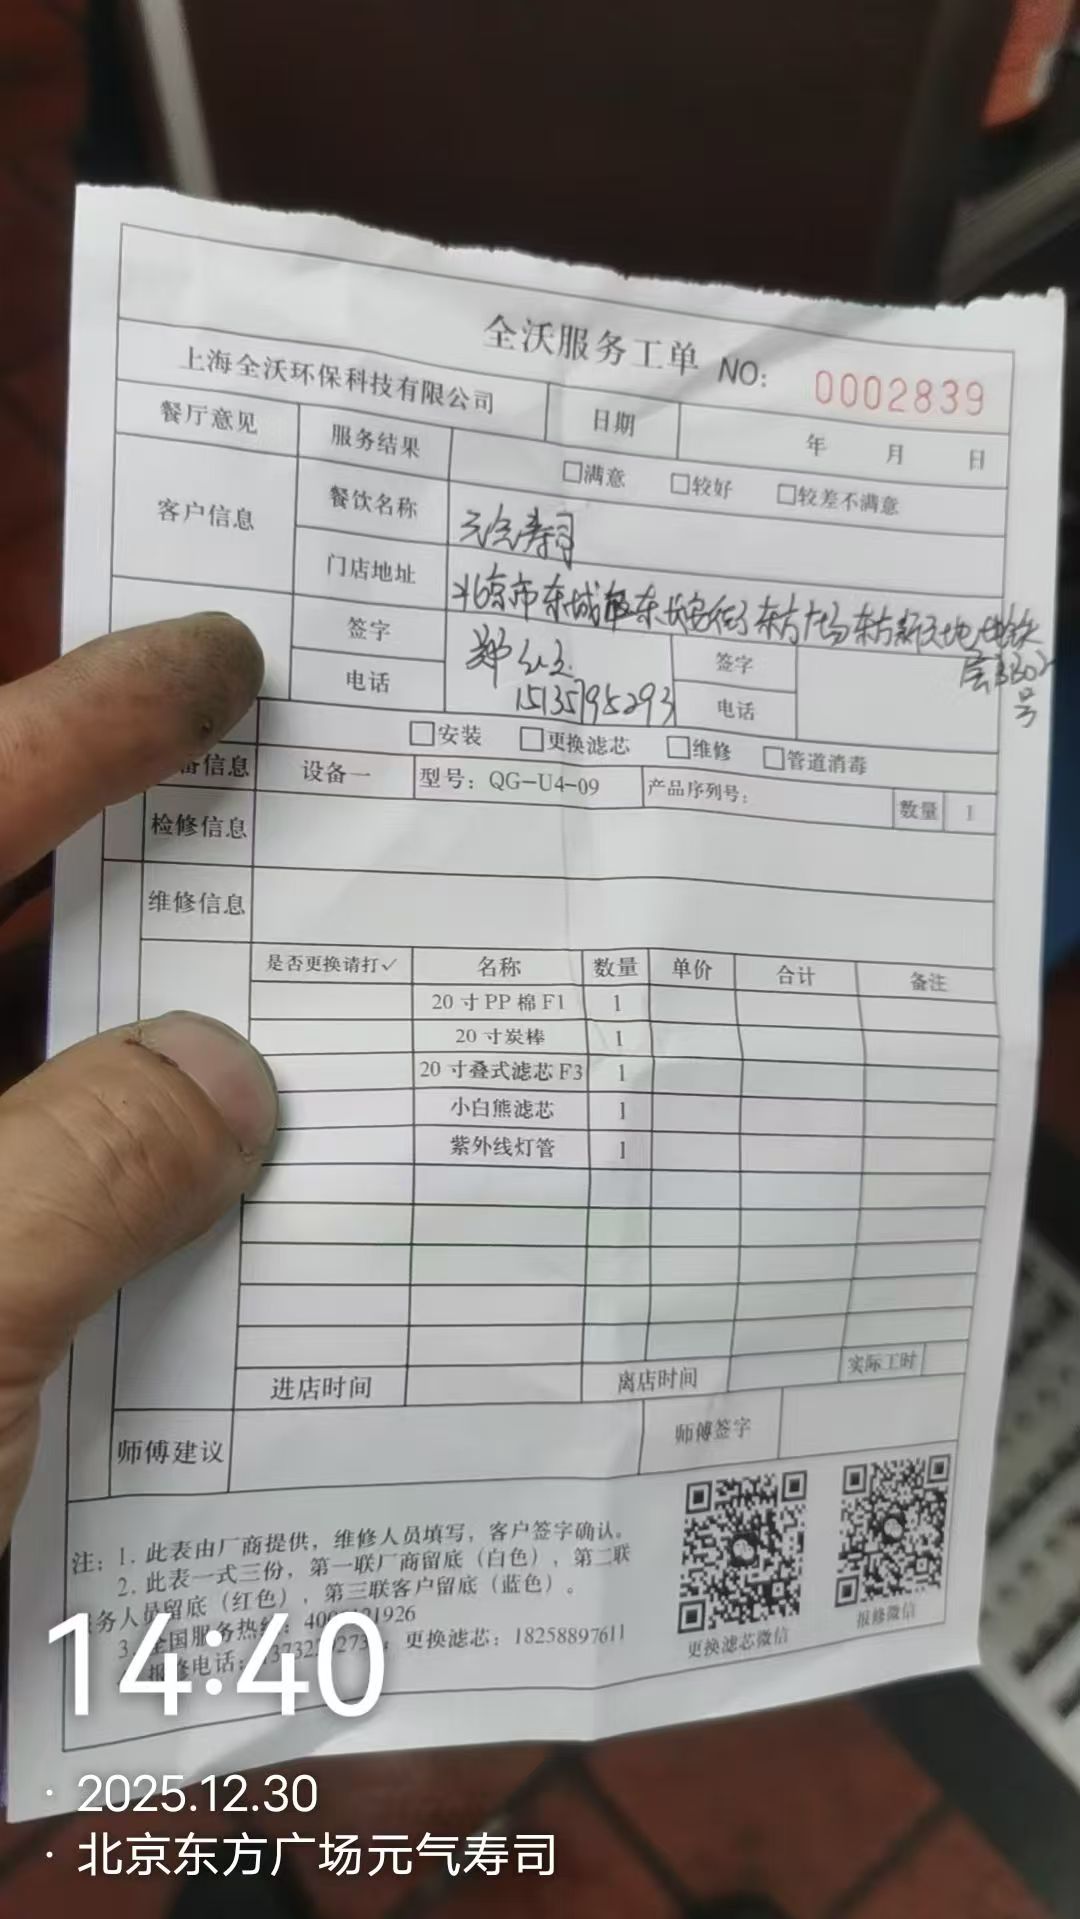 全沃服务工单 NO: 0002839
上海全沃环保科技有限公司 日期 年 月 日
餐厅意见 服务结果 □满意 □较好 □较差不满意
客户信息 餐饮名称 元气寿司
门店地址 北京市东城区东长安街东方广场东方新天地地铁
层
号
签字 郑 签字
电话 15135795293 电话
□安装 □更换滤芯 □维修 □管道消毒
备信息 设备一 型号：QG-U4-09 产品序列号： 数量 1
检修信息
维修信息
是否更换请打✓ 名称 数量 单价 合计 备注
20寸PP棉F1 1
20寸炭棒 1
20寸叠式滤芯F3 1
小白熊滤芯 1
紫外线灯管 1
进店时间 离店时间 实际工时
师傅建议 师傅签字
注：1. 此表由厂商提供，维修人员填写，客户签字确认。
2. 此表一式三份，第一联厂商留底（白色），第二联
务人员留底（红色），第三联客户留底（蓝色）。
3. 全国服务热线：
报修电话： 更换滤芯：18258897611
更换滤芯微信 报修微信
14:40
· 2025.12.30
· 北京东方广场元气寿司